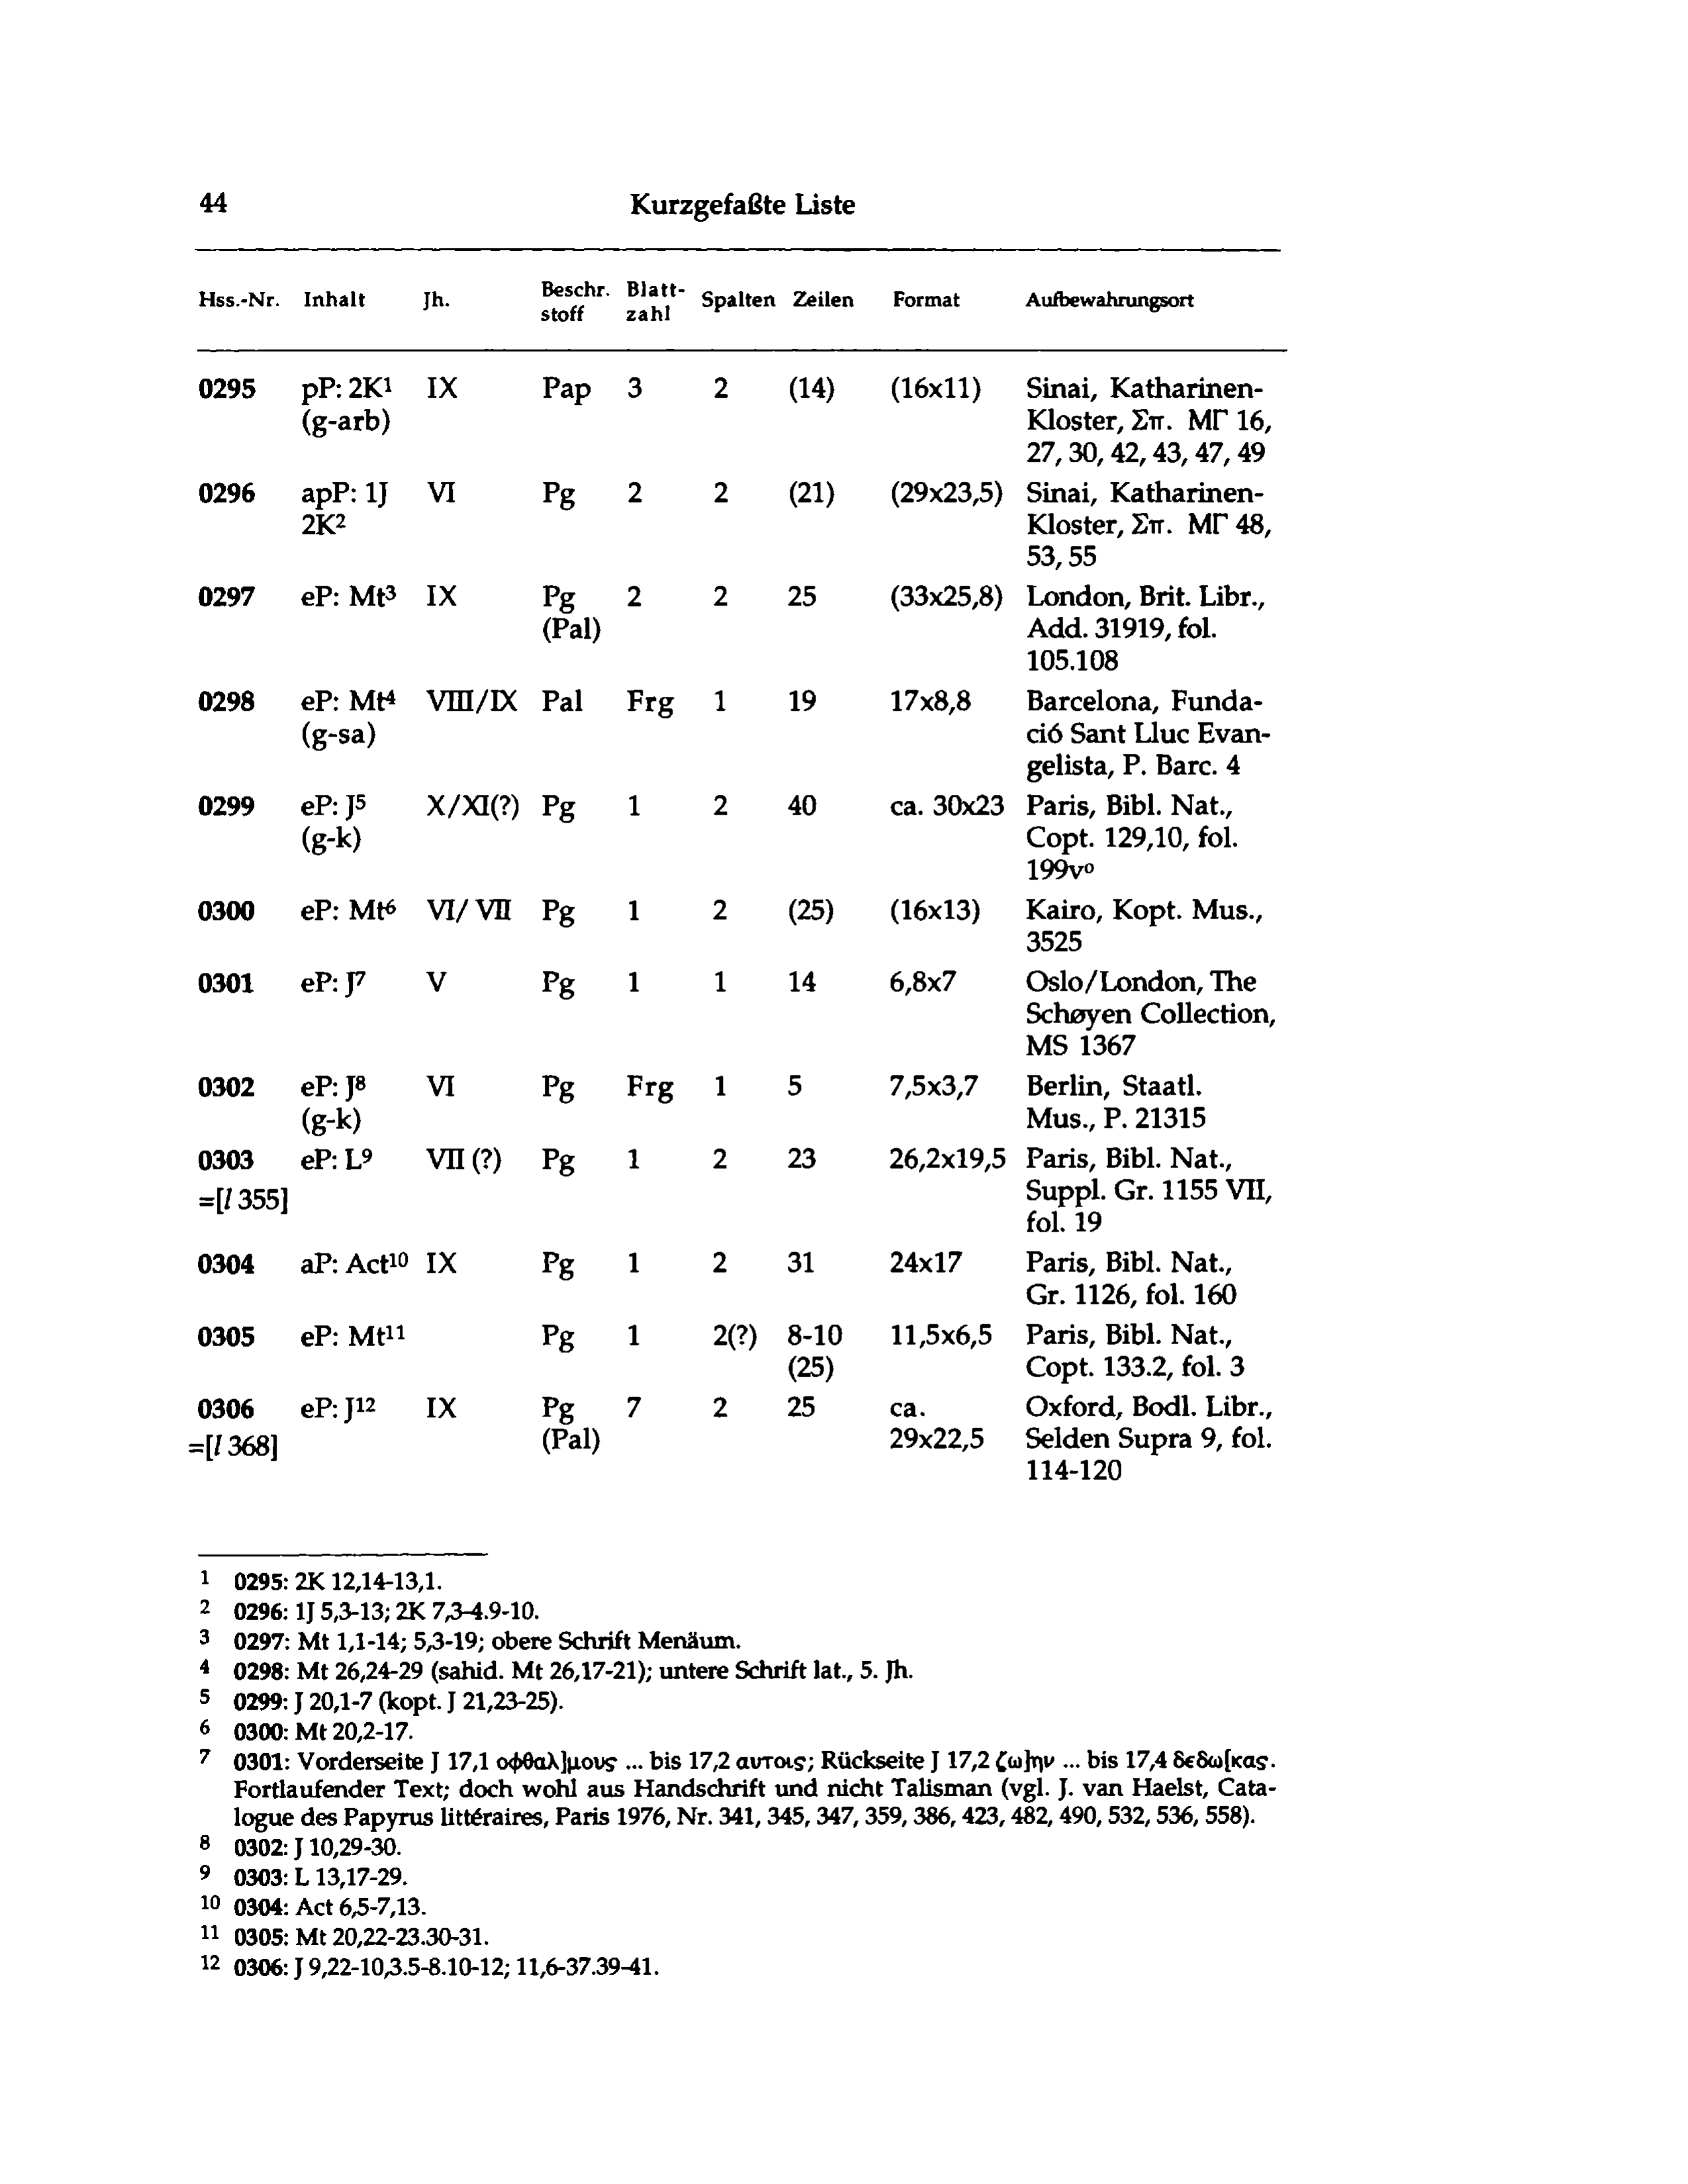 44 Kurzgefaßte Liste
Hss.-Nr. Inhalt Jh. Beschr. stoff Blatt- zahl Spalten Zeilen Format Aufbewahrungsort
0295 pP: 2K¹ IX Pap 3 2 (14) (16x11) Sinai, Katharinen-
(g-arb) Kloster, Σπ. ΜΓ 16,
27, 30, 42, 43, 47, 49
0296 apP: 1J VI Pg 2 2 (21) (29x23,5) Sinai, Katharinen-
2K² Kloster, Σπ. ΜΓ 48,
53, 55
0297 eP: Mt³ IX Pg 2 2 25 (33x25,8) London, Brit. Libr.,
(Pal) Add. 31919, fol.
105.108
0298 eP: Mt⁴ VIII/IX Pal Frg 1 19 17x8,8 Barcelona, Funda-
(g-sa) ció Sant Lluc Evan-
gelista, P. Barc. 4
0299 eP: J⁵ X/XI(?) Pg 1 2 40 ca. 30x23 Paris, Bibl. Nat.,
(g-k) Copt. 129,10, fol.
199vº
0300 eP: Mt⁶ VI/ VII Pg 1 2 (25) (16x13) Kairo, Kopt. Mus.,
3525
0301 eP: J⁷ V Pg 1 1 14 6,8x7 Oslo/London, The
Schøyen Collection,
MS 1367
0302 eP: J⁸ VI Pg Frg 1 5 7,5x3,7 Berlin, Staatl.
(g-k) Mus., P. 21315
0303 eP: L⁹ VII (?) Pg 1 2 23 26,2x19,5 Paris, Bibl. Nat.,
=[l 355] Suppl. Gr. 1155 VII,
fol. 19
0304 aP: Act¹⁰ IX Pg 1 2 31 24x17 Paris, Bibl. Nat.,
Gr. 1126, fol. 160
0305 eP: Mt¹¹ Pg 1 2(?) 8-10 11,5x6,5 Paris, Bibl. Nat.,
(25) Copt. 133.2, fol. 3
0306 eP: J¹² IX Pg 7 2 25 ca. Oxford, Bodl. Libr.,
=[l 368] (Pal) 29x22,5 Selden Supra 9, fol.
114-120
1 0295: 2K 12,14-13,1.
2 0296: 1J 5,3-13; 2K 7,3-4.9-10.
3 0297: Mt 1,1-14; 5,3-19; obere Schrift Menäum.
4 0298: Mt 26,24-29 (sahid. Mt 26,17-21); untere Schrift lat., 5. Jh.
5 0299: J 20,1-7 (kopt. J 21,23-25).
6 0300: Mt 20,2-17.
7 0301: Vorderseite J 17,1 οφθαλ]μους ... bis 17,2 αυτοις; Rückseite J 17,2 ζω]ην ... bis 17,4 δεδω[κας.
Fortlaufender Text; doch wohl aus Handschrift und nicht Talisman (vgl. J. van Haelst, Cata-
logue des Papyrus littéraires, Paris 1976, Nr. 341, 345, 347, 359, 386, 423, 482, 490, 532, 536, 558).
8 0302: J 10,29-30.
9 0303: L 13,17-29.
10 0304: Act 6,5-7,13.
11 0305: Mt 20,22-23.30-31.
12 0306: J 9,22-10,3.5-8.10-12; 11,6-37.39-41.